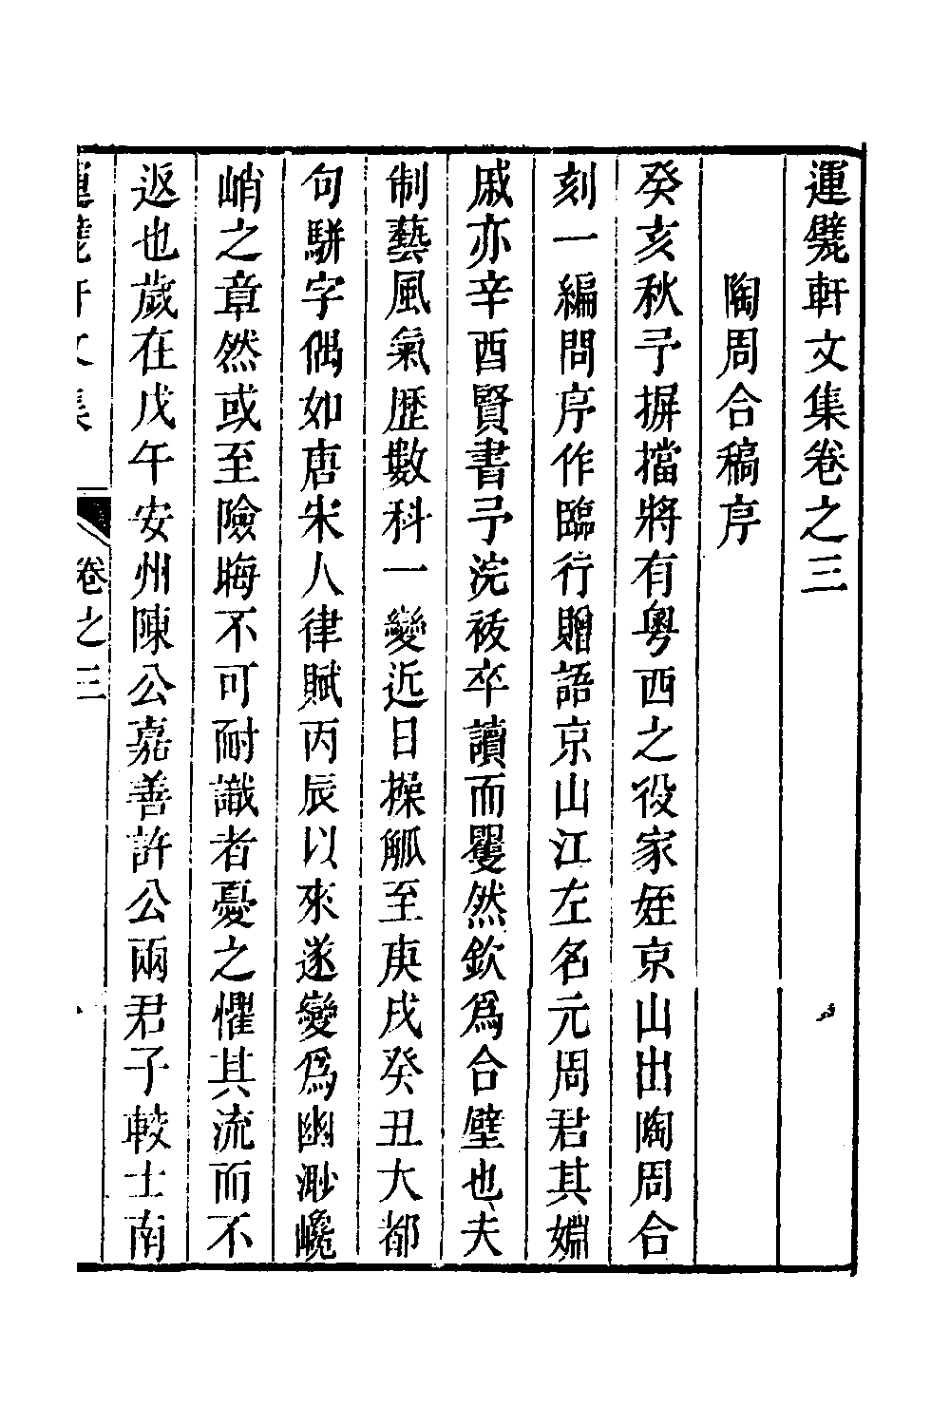 運甓軒文集卷之三
陶周合稿序
癸亥秋予摒擋將有粵西之役家姪京山出陶周合
刻一編問序作臨行贈語京山江左名元周君其婣
戚亦辛酉賢書予浣被卒讀而矍然欽爲合璧也夫
制藝風氣歷數科一變近日操觚至庚戌癸丑大都
句駢字偶如唐宋人律賦丙辰以來遂變爲幽渺巉
峭之章然或至險晦不可耐識者憂之懼其流而不
返也歲在戊午安州陳公嘉善許公兩君子較士南
運甓軒文集 卷之三